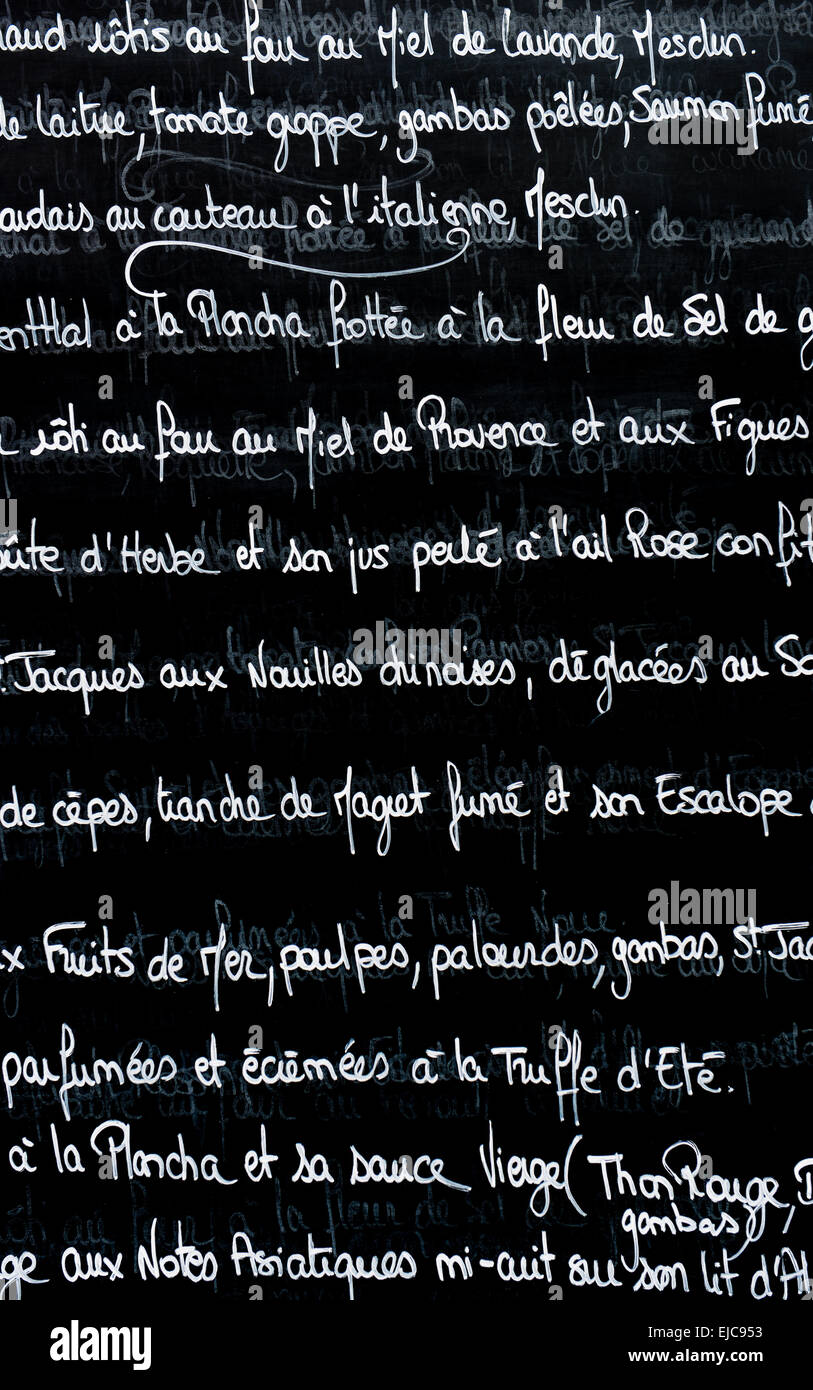 rôtis au four au Miel de Lavande, Mesclun.
de laitue, tomate grappe, gambas poêlées, Saumon fumé
au couteau à l'italienne, Mesclun.
à la Plancha frottée à la fleur de Sel de
rôti au four au Miel de Provence et aux Figues
d'Herbe et son jus perlé à l'ail Rose confit
St Jacques aux Nouilles chinoises, déglacées au
de cêpes, tranche de Magret fumé et son Escalope
Fruits de Mer, poulpes, palourdes, gambas, St. Jac
parfumées et écrémées à la Truffe d'Eté.
à la Plancha et sa sauce Vierge (Thon Rouge,
gambas
aux Notes Asiatiques mi-cuit sur son lit d'Al
alamy stock photo
EJC953
www.alamy.com